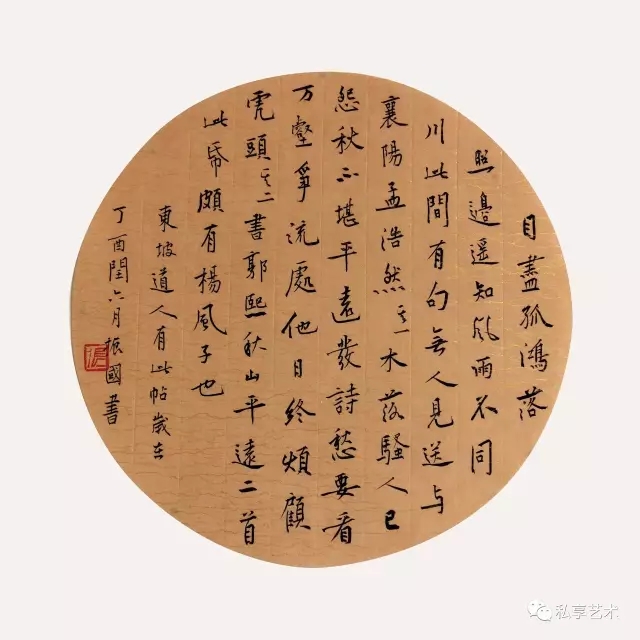 目盡孤鴻落
照邊遥知風雨不同
川此間有句無人見送与
襄陽孟浩然其一木落騷人已
怨秋不堪平遠發詩愁要看
万壑爭流處他日終煩顧
虎頭其二書郭熙秋山平遠二首
此帋頗有楊風子也
東坡道人有此帖歲在
丁酉閏六月振國書
私享艺术